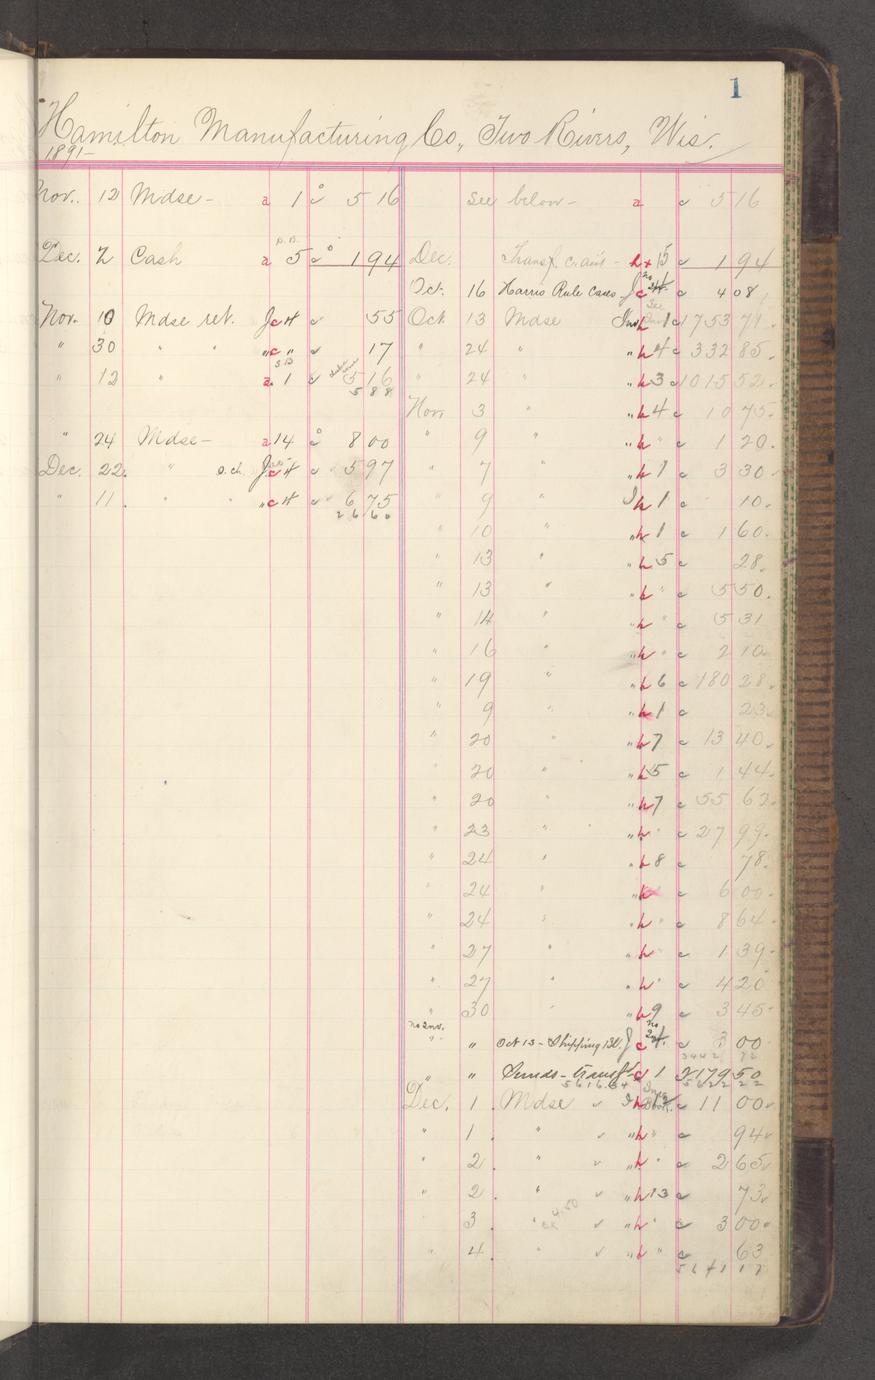 1
Hamilton Manufacturing Co., Two Rivers, Wis.
1891-
Nov. 12 Mdse - a 1 5 16 See below - a 5 16
Dec. 2 Cash a 5 1 94 Dec. Transf. h 15 1 94
Oct. 16 Harris Rule Cases - J c 4 08
Nov. 10 Mdse ret. J c 55 Oct 13 Mdse Inv h 1 1753 71
" 30 " " " c " 17 " 24 " " h 4 332 85
" 12 " a 1 5 16 " 24 " " h 3 1015 52
5 88
Nov. 3 " " h 4 10 75
" 24 Mdse - a 14 8 00 " 9 " " h " 1 20
Dec. 22. " J c 5 97 " 7 " " h 1 3 30
" 11. " " " c 6 75 " 9 " h 1 10
26 60
" 10 " " h 1 1 60
" 13 " " h 5 28
" 13 " " h " 5 50
" 14 " " h " 5 31
" 16 " " h " 2 10
" 19 " " h 6 180 28
" 9 " " h 1 23
" 20 " " h 7 13 40
" 20 " " h 5 1 44
" 20 " " h 7 55 62
" 23 " " h " 27 99
" 24 " " h 8 78
" 24 " " h 6 00
" 24 " " h " 8 64
" 27 " " h " 1 39
" 27 " " h " 4 20
" 30 " " h 9 3 45
no inv.
" " Oct 13 - Shipping Bl. J c 3 00
3442 72
" " Sunds - transf. 1 2179 50
5616.34 5622 22
Dec. 1. Mdse h 11 00
1. " " h " 94
" 2. " " h " 2 65
" 2. " " h 13 73
3. " " h " 3 00
" 4. " " h " 63
5641 17